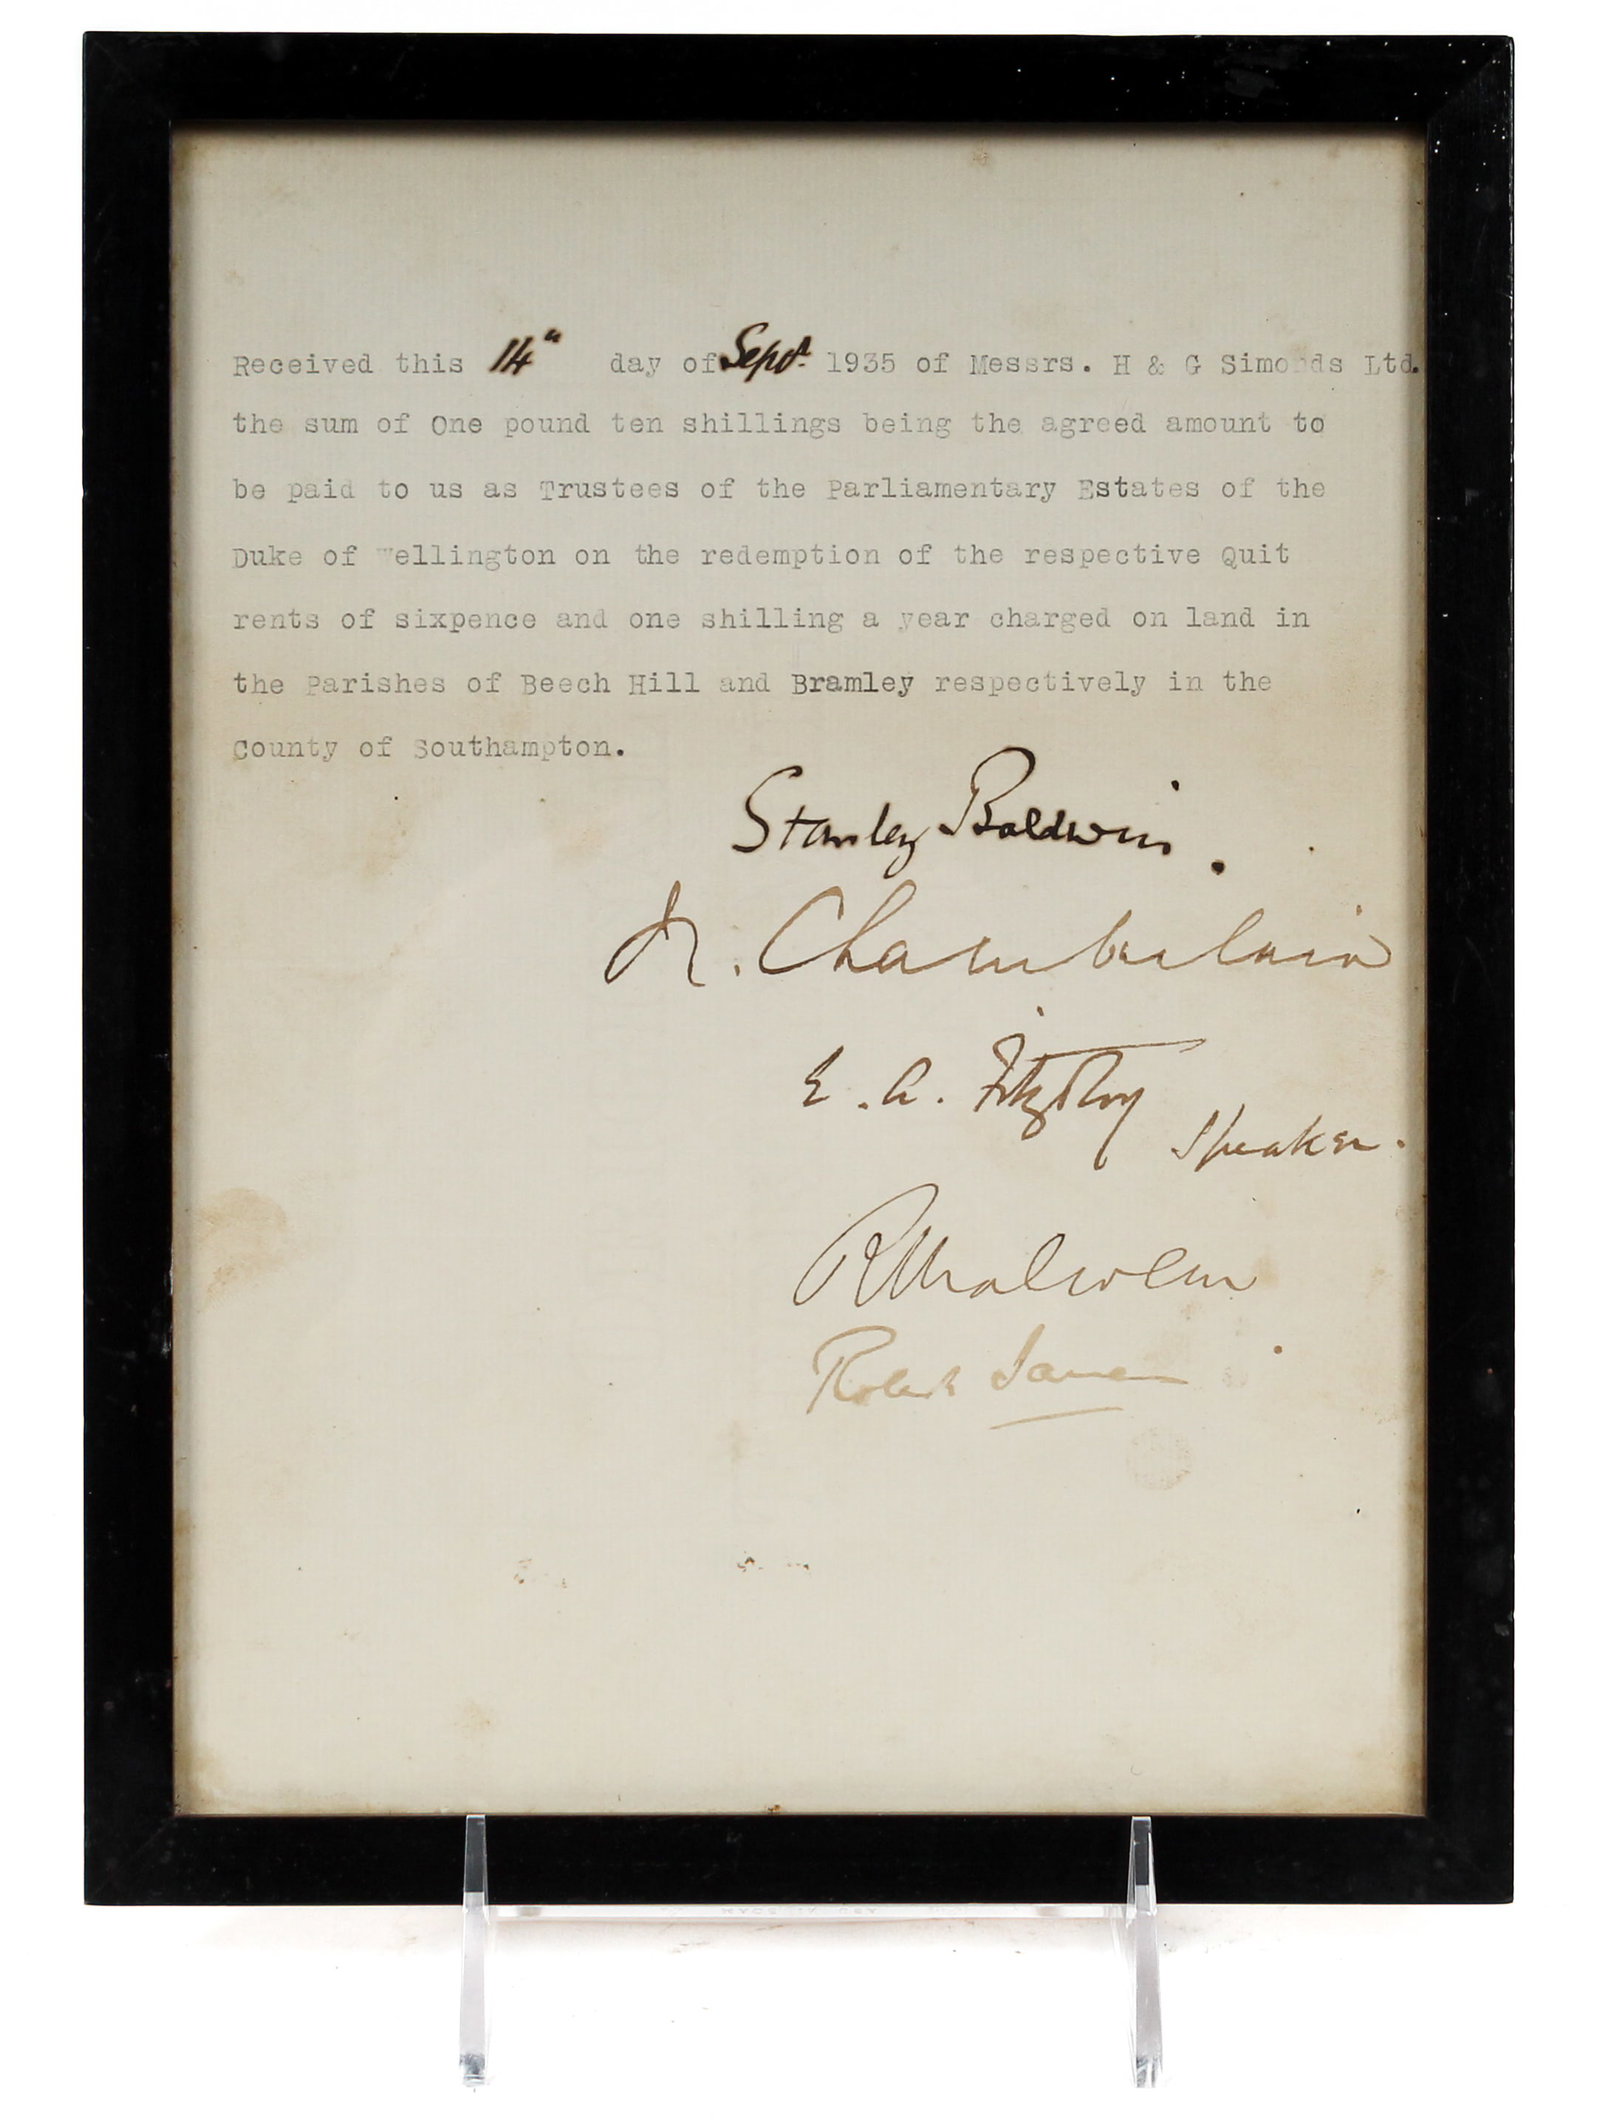 Received this 14" day of Sept. 1935 of Messrs. H & G Simonds Ltd.
the sum of One pound ten shillings being the agreed amount to
be paid to us as Trustees of the Parliamentary Estates of the
Duke of Wellington on the redemption of the respective Quit
rents of sixpence and one shilling a year charged on land in
the Parishes of Beech Hill and Bramley respectively in the
County of Southampton.
Stanley Baldwin.
N. Chamberlain
E. A. FitzRoy
Speaker.
R Malcolm
Robert
MADE IN USA